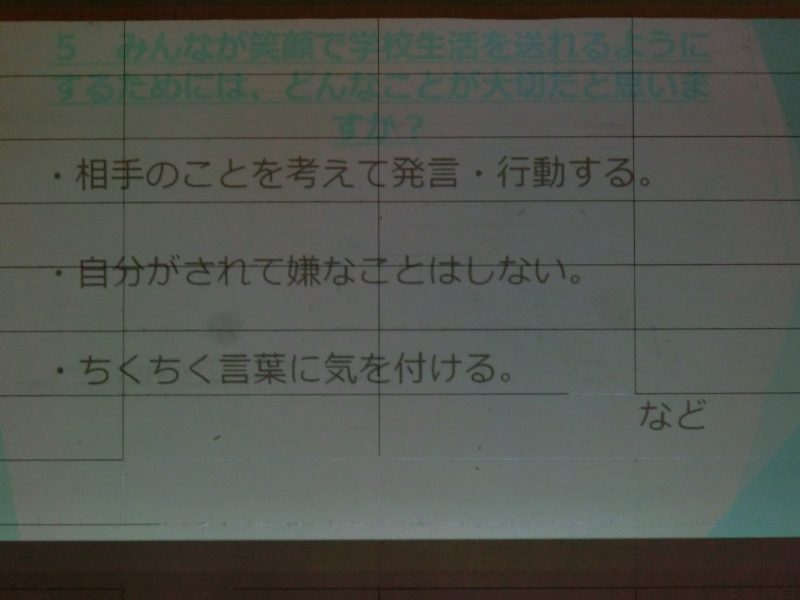 5 みんなが笑顔で学校生活を送れるように
するためには、どんなことが大切だと思いま
すか？
・相手のことを考えて発言・行動する。
・自分がされて嫌なことはしない。
・ちくちく言葉に気を付ける。
など